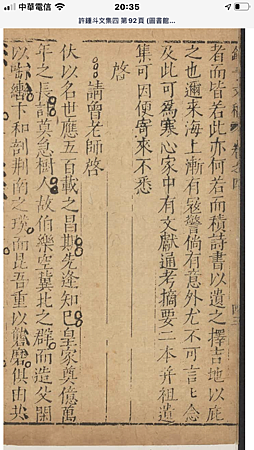 中華電信 20:35
許鍾斗文集四 第92頁 (圖書館...
者而皆若此亦何若而積詩書以遺之擇吉地以庇
之也邇來海上漸有寇警倘有意外尤不可言念
及此可為寒心家中有文獻通考摘要二本并祖遺
集可因便寄來不悉
啓
請曾老師啓
伏以名世應五百載之昌期先逢知巳皇家奠億萬
年之長計莫急樹人故伯樂空冀北之群而造父閑
以啣轡卞和剖荊南之璞而昆吾重以磨俱由共